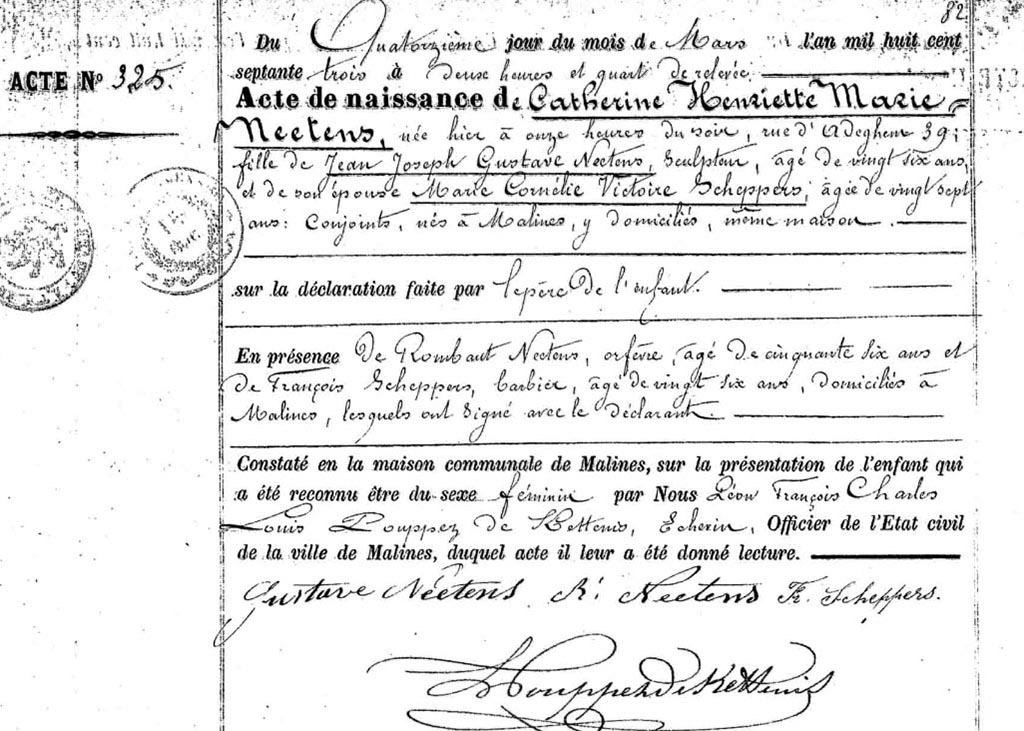 82
Du Quatorzième jour du mois de Mars l'an mil huit cent
ACTE Nº 325.
septante trois à deux heures et quart de relevée
Acte de naissance de Catherine Henriette Marie
Neetens, née hier à onze heures du soir, rue d'Adeghem 39;
fille de Jean Joseph Gustave Neetens, Sculpteur, âgé de vingt six ans,
et de son épouse Marie Cornélie Victoire Scheppers, âgée de vingt sept
ans: Conjoints, nés à Malines, y domiciliés, même maison.
sur la déclaration faite par le père de l'enfant.
En présence de Rombaut Neetens, orfèvre, âgé de cinquante six ans et
de François Scheppers, barbier, âgé de vingt six ans, domiciliés à
Malines, lesquels ont signé avec le déclarant.
Constaté en la maison communale de Malines, sur la présentation de l'enfant qui
a été reconnu être du sexe féminin par Nous Léon François Charles
Louis Pouppez de Kettenis, Echevin, Officier de l'Etat civil
de la ville de Malines, duquel acte il leur a été donné lecture.
Gustave Néetens R: Neetens Fr. Scheppers.
Pouppez de Kettenis